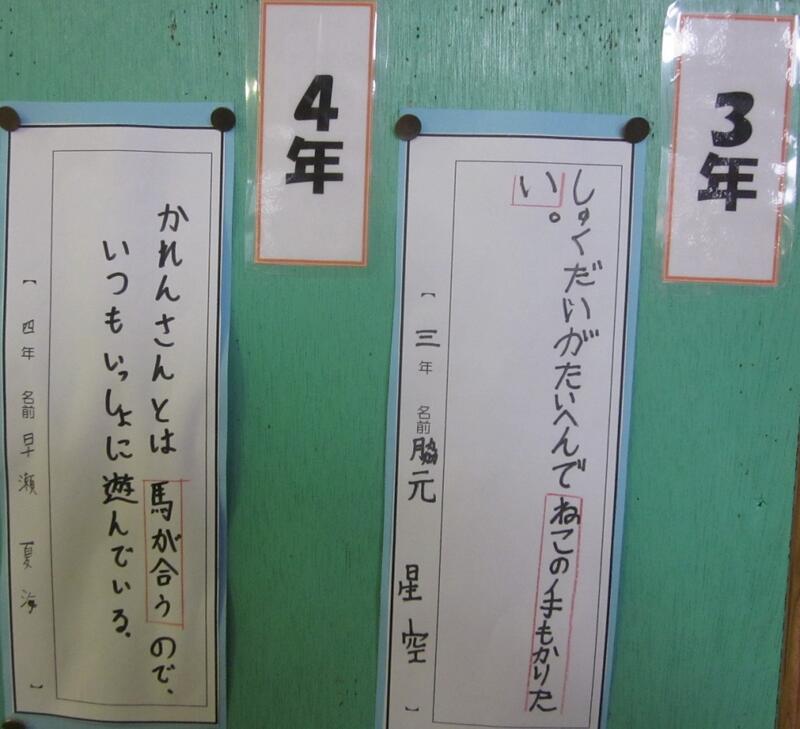 3年
しゅくだいがたいへんでねこの手もかりた
い。
【 三年 名前 脇元 星空 】
4年
かれんさんとは馬が合うので、
いつもいっしょに遊んでいる。
【 四年 名前 早瀬 夏海 】